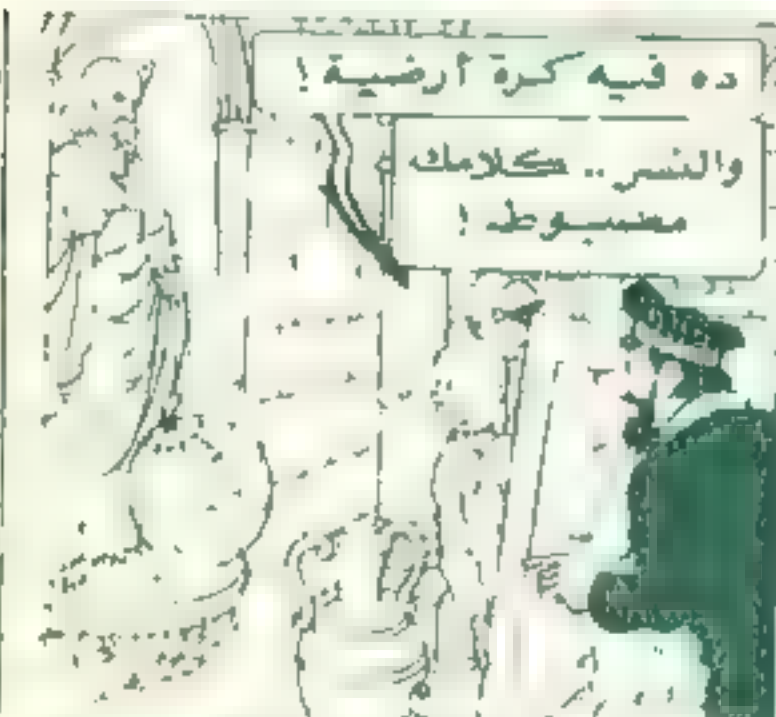 ده فيه كرة أرضية !
والنسر .. كلامك
مضبوط !